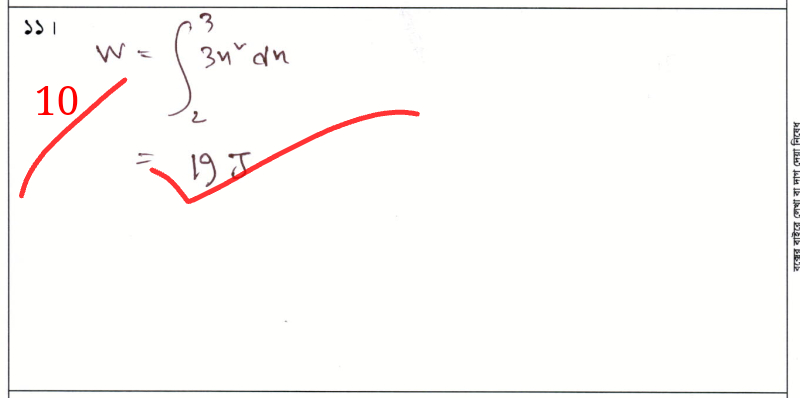 ১১।
W = ∫₂³ 3x² dx
10
= 19 J
বক্সের বাইরে লেখা বা দাগ দেয়া নিষেধ